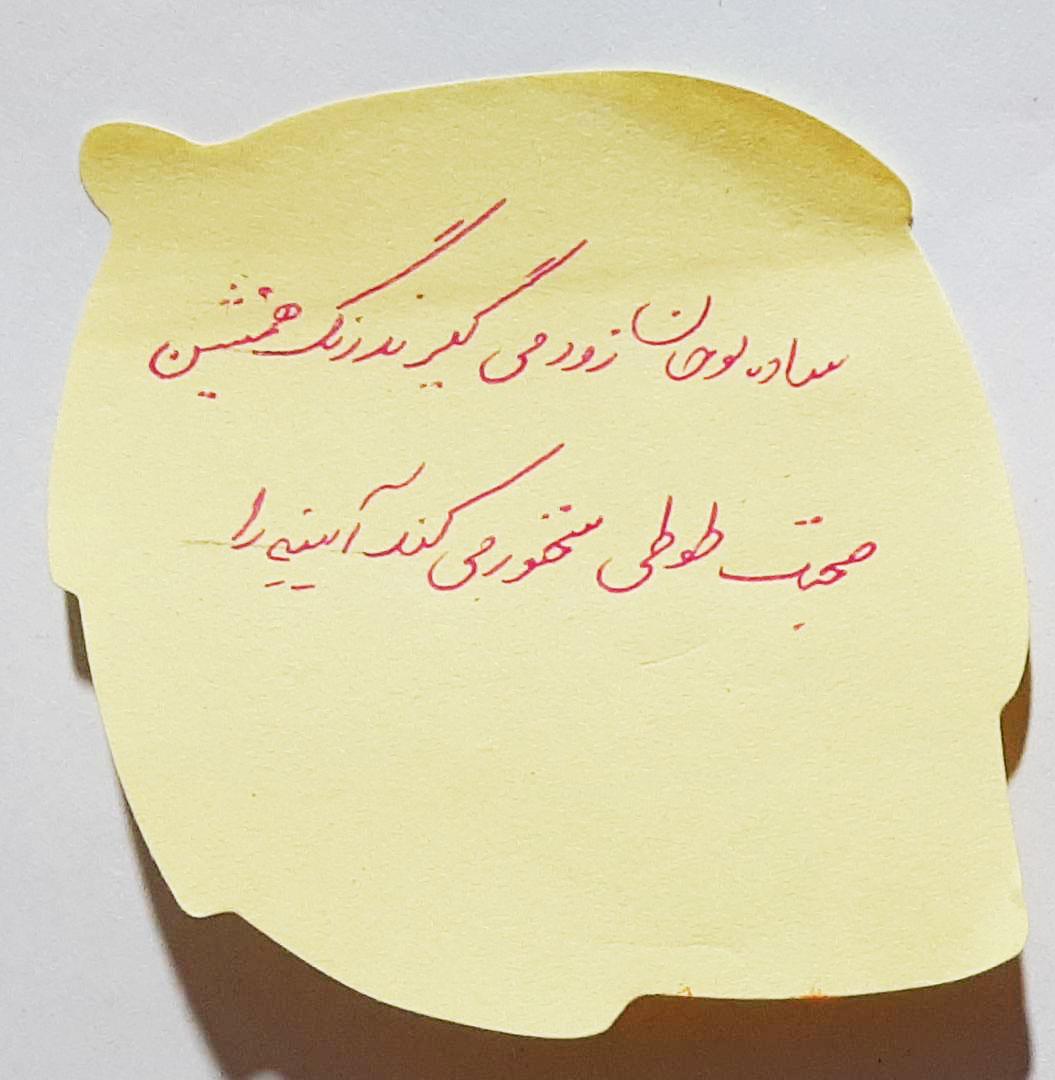 ساده لوحان زود می گیرند رنگ همنشین
صحبت طوطی سخنور می کند آیینه را